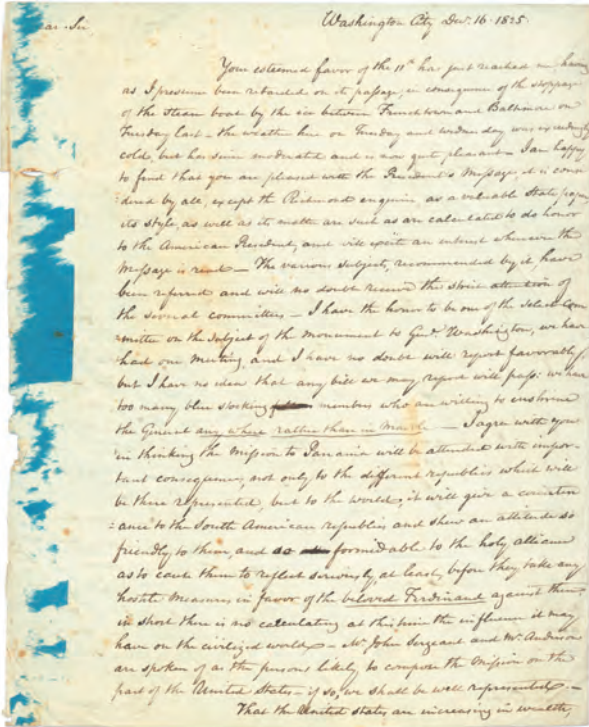 Washington City Decr. 16. 1825.
Dear Sir
Your esteemed favor of the 11th has just reached me, having
as I presume been retarded on its passage, in consequence of the stoppage
of the Steam boat by the ice between Frenchtown and Baltimore on
Tuesday last – the weather here on Tuesday and Wednesday was exceedingly
cold, but has since moderated and is now quite pleasant – I am happy
to find that you are pleased with the President's Message, it is consi
=dered by all, except the Richmond enquirer as a valuable State paper
its style, as well as its matter are such as are calculated to do honor
to the American President, and will excite an interest wherever the
Message is read – The various subjects, recommended by it, have
been referred and will no doubt receive the strict attention of
the several committees – I have the honor to be one of the Select Com
=mittee on the subject of the monument to Genl. Washington, we have
had one meeting and I have no doubt will report favorably,
but I have no idea that any bill we may report will pass: we have
too many blue stocking members who are willing to enshrine
the General any where rather than in Marble – I agree with you
in thinking the Mission to Panama will be attended with impor
=tant consequences, not only to the different republics which will
be there represented, but to the world, it will give a counten
=ance to the South American republics and shew an attitude so
friendly to them, and so formidable to the holy alliance
as to cause them to reflect seriously, at least, before they take any
hostile measures in favor of the beloved Ferdinand against them
in short there is no calculating at this time the influence it may
have on the civilized world – Mr. John Sergeant and Mr. Anderson
are spoken of as the persons likely to compose the Mission on the
part of the United States – if so, we shall be well represented –
That the United States are increasing in wealth,